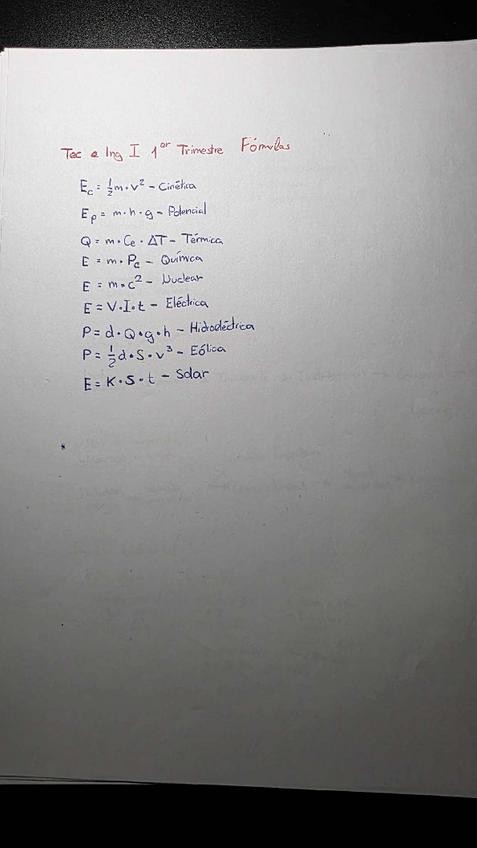 Tec e Ing I 1er Trimestre Fórmulas
Ec = ½ m · v² – Cinética
Ep = m · h · g – Potencial
Q = m · Ce · ΔT – Térmica
E = m · Pc – Química
E = m · c² – Nuclear
E = V · I · t – Eléctrica
P = d · Q · g · h – Hidroeléctrica
P = ½ d · S · v³ – Eólica
E = K · S · t – Solar